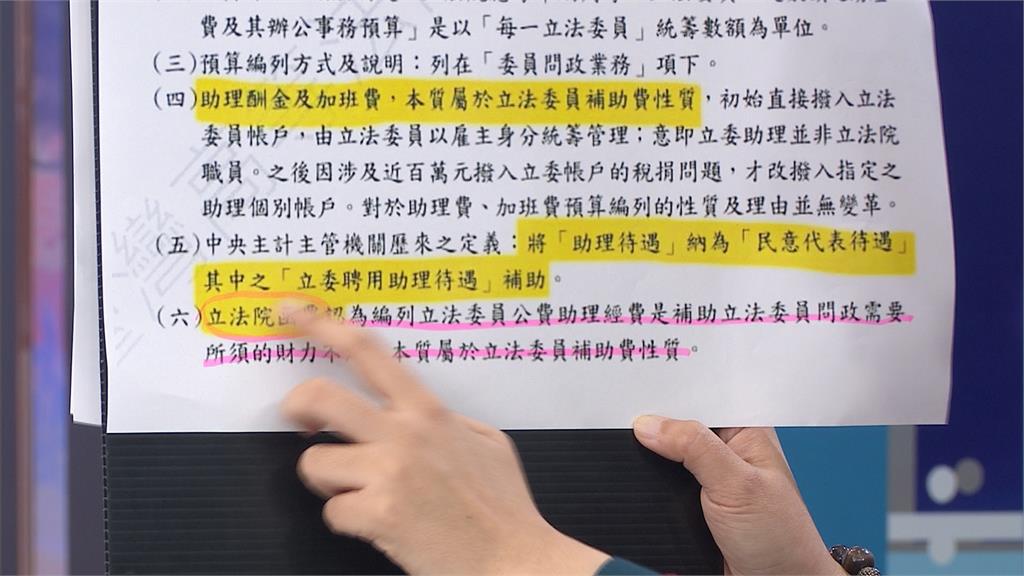 費及其辦公事務預算」是以「每一立法委員」統籌數額為單位。
(三)預算編列方式及說明：列在「委員問政業務」項下。
(四)助理酬金及加班費，本質屬於立法委員補助費性質，初始直接撥入立法
委員帳戶，由立法委員以雇主身分統籌管理；意即立委助理並非立法院
職員。之後因涉及近百萬元撥入立委帳戶的稅捐問題，才改撥入指定之
助理個別帳戶。對於助理費、加班費預算編列的性質及理由並無變革。
(五)中央主計主管機關歷來之定義：將「助理待遇」納為「民意代表待遇」
其中之「立委聘用助理待遇」補助。
(六)立法院函 認為編列立法委員公費助理經費是補助立法委員問政需要
所須的財力不 本質屬於立法委員補助費性質。
灣高等